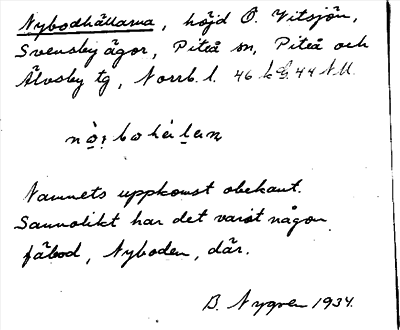 Nybodhällarna, höjd Ö. Vitsjön,
Svensby ägor, Piteå sn, Piteå och
Älvsby tg, Norrb. l.
Namnets uppkomst obekant.
Sannolikt har det varit någon
fäbod, Nyboden, där.
B. Nygren 1934.